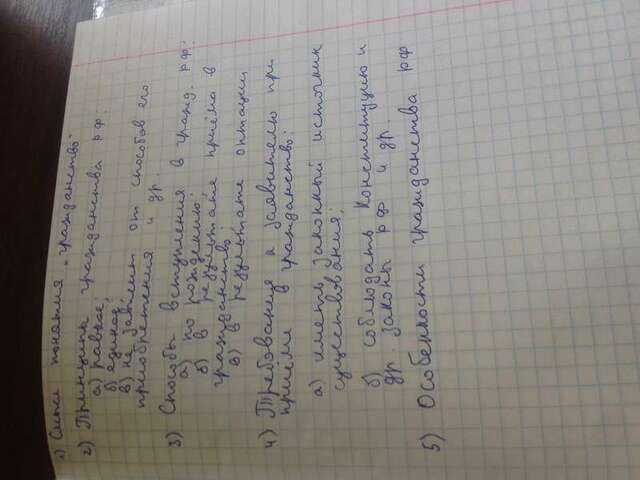 1) Смысл понятия „гражданство"
2) Принципы гражданства РФ:
а) равное;
б) единое;
в) не зависит от способов его
приобретения и др.
3) Способы вступления в гражд. РФ:
а) по рождению;
б) в результате приёма в
гражданство
в) в результате оптации;
4) Требования к заявителю при
приёме в гражданство:
а) иметь законный источник
существования;
б) соблюдать Конституцию и
др законы РФ и др.
5) Особенности гражданства РФ